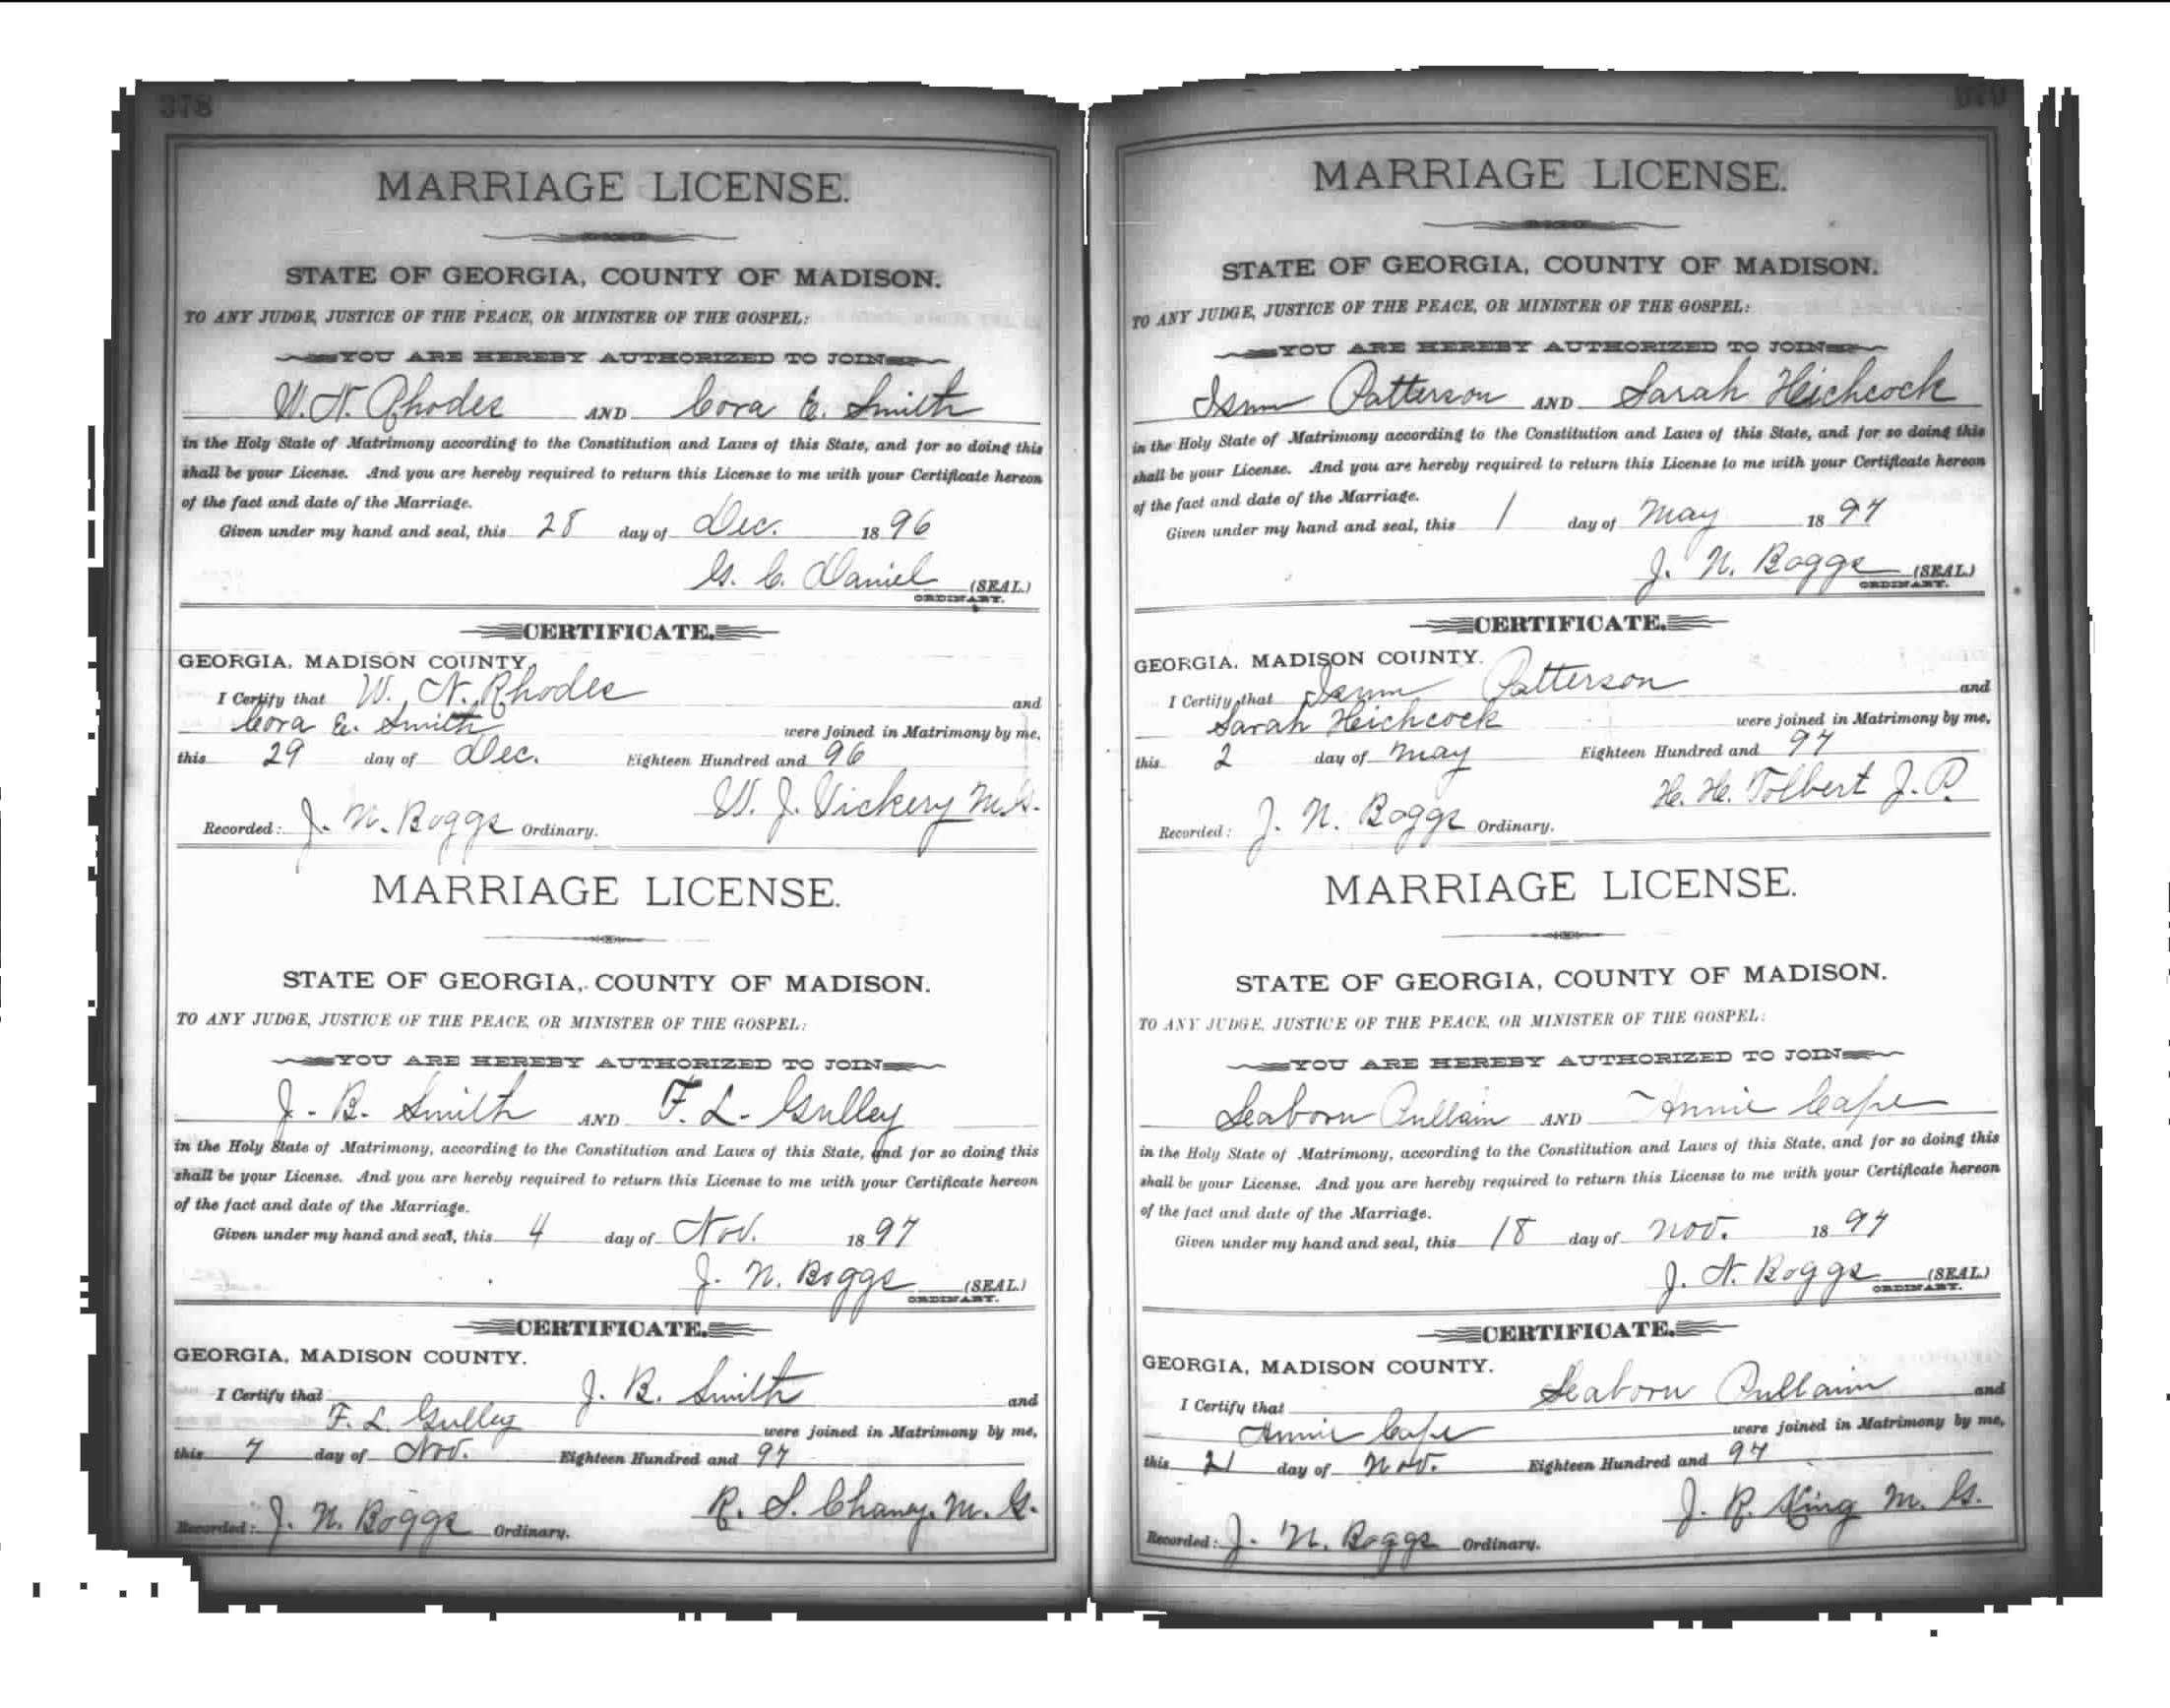 378
MARRIAGE LICENSE.
STATE OF GEORGIA, COUNTY OF MADISON.
TO ANY JUDGE, JUSTICE OF THE PEACE, OR MINISTER OF THE GOSPEL:
YOU ARE HEREBY AUTHORIZED TO JOIN
W. N. Rhodes AND Cora E. Smith
in the Holy State of Matrimony according to the Constitution and Laws of this State, and for so doing this
shall be your License. And you are hereby required to return this License to me with your Certificate hereon
of the fact and date of the Marriage.
Given under my hand and seal, this 28 day of Dec. 1896
G. C. Daniel (SEAL)
ORDINARY.
CERTIFICATE.
GEORGIA, MADISON COUNTY.
I Certify that W. N. Rhodes and
Cora E. Smith were joined in Matrimony by me,
this 29 day of Dec. Eighteen Hundred and 96
W. J. Vickery M.G.
Recorded: J. N. Boggs Ordinary.
MARRIAGE LICENSE.
STATE OF GEORGIA, COUNTY OF MADISON.
TO ANY JUDGE, JUSTICE OF THE PEACE, OR MINISTER OF THE GOSPEL:
YOU ARE HEREBY AUTHORIZED TO JOIN
J. B. Smith AND F. L. Gulley
in the Holy State of Matrimony, according to the Constitution and Laws of this State, and for so doing this
shall be your License. And you are hereby required to return this License to me with your Certificate hereon
of the fact and date of the Marriage.
Given under my hand and seal, this 4 day of Nov. 1897
J. N. Boggs (SEAL)
ORDINARY.
CERTIFICATE.
GEORGIA, MADISON COUNTY.
I Certify that J. B. Smith and
F. L. Gulley were joined in Matrimony by me,
this 7 day of Nov. Eighteen Hundred and 97
R. S. Chaney. M. G.
Recorded: J. N. Boggs Ordinary.
MARRIAGE LICENSE.
STATE OF GEORGIA, COUNTY OF MADISON.
TO ANY JUDGE, JUSTICE OF THE PEACE, OR MINISTER OF THE GOSPEL:
YOU ARE HEREBY AUTHORIZED TO JOIN
Patterson AND Sarah Heichcock
in the Holy State of Matrimony according to the Constitution and Laws of this State, and for so doing this
shall be your License. And you are hereby required to return this License to me with your Certificate hereon
of the fact and date of the Marriage.
Given under my hand and seal, this 1 day of May 1897
J. N. Boggs (SEAL)
ORDINARY.
CERTIFICATE.
GEORGIA, MADISON COUNTY.
I Certify that Patterson and
Sarah Heichcock were joined in Matrimony by me,
this 2 day of May Eighteen Hundred and 97
H. H. Tolbert J. P.
Recorded: J. N. Boggs Ordinary.
MARRIAGE LICENSE.
STATE OF GEORGIA, COUNTY OF MADISON.
TO ANY JUDGE, JUSTICE OF THE PEACE, OR MINISTER OF THE GOSPEL:
YOU ARE HEREBY AUTHORIZED TO JOIN
Seaborn Pullain AND Annie Cape
in the Holy State of Matrimony, according to the Constitution and Laws of this State, and for so doing this
shall be your License. And you are hereby required to return this License to me with your Certificate hereon
of the fact and date of the Marriage.
Given under my hand and seal, this 18 day of Nov. 1897
J. N. Boggs (SEAL)
ORDINARY.
CERTIFICATE.
GEORGIA, MADISON COUNTY.
I Certify that Seaborn Pullain and
Annie Cape were joined in Matrimony by me,
this 21 day of Nov. Eighteen Hundred and 97
J. R. King M. G.
Recorded: J. N. Boggs Ordinary.